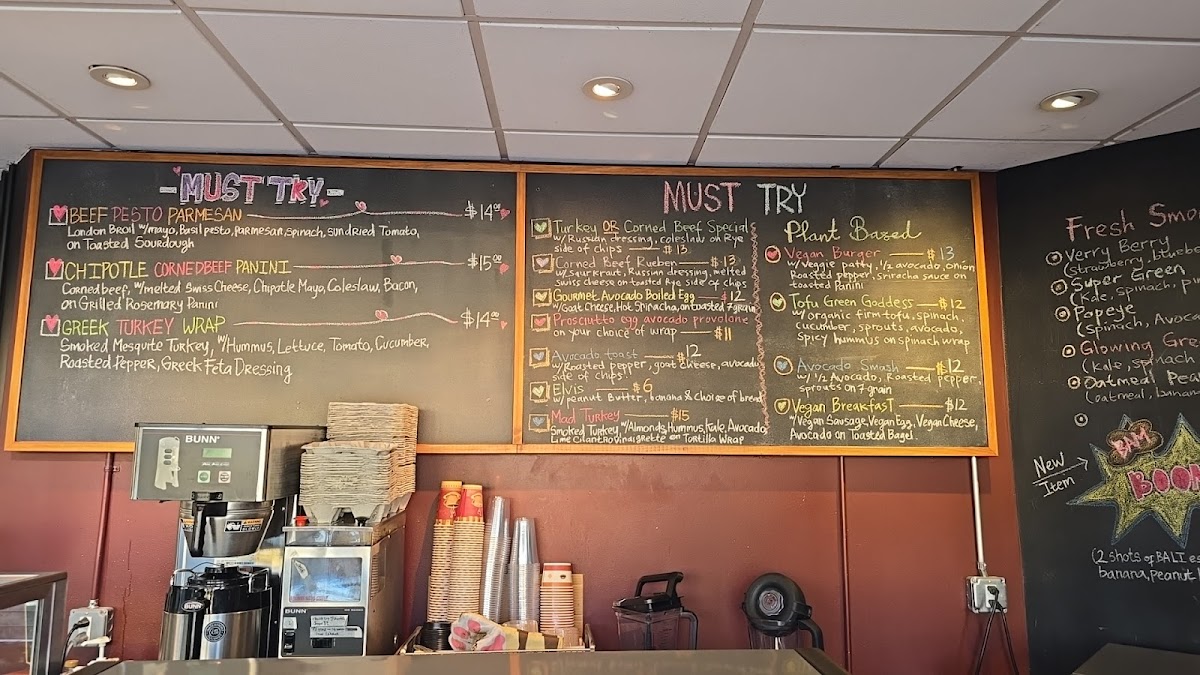 MUST TRY
BEEF PESTO PARMESAN $14.00
London Broil w/mayo, Basil pesto, parmesan, spinach, sundried Tomato,
on Toasted Sourdough
CHIPOTLE CORNEDBEEF PANINI $15.00
Corned beef, w/melted Swiss Cheese, Chipotle Mayo, Coleslaw, Bacon,
on Grilled Rosemary Panini
GREEK TURKEY WRAP $14.00
Smoked Mesquite Turkey, w/Hummus, Lettuce, Tomato, Cucumber,
Roasted Pepper, Greek Feta Dressing
MUST TRY
Turkey OR Corned Beef Special
w/Russian dressing, coleslaw on Rye
side of chips $13
Corned Beef Rueben $13
w/Saurkraut, Russian dressing, melted
Swiss cheese on toasted Rye side of chips
Gourmet Avocado Boiled Egg $12
w/Goat Cheese, Hot Spinacha, on toasted 7grain
Prosciutto egg avocado provolone
on your choice of wrap $11
Avocado toast $12
w/Roasted pepper, goat cheese, avocado
side of chips!
Elvis $6
w/peanut Butter, banana & choice of bread
Mad Turkey $15
Smoked Turkey, w/Almonds, Hummus, Kale, Avocado,
Lime Cilantro Vinaigrette on Tortilla Wrap
Plant Based
Vegan Burger $13
w/Veggie patty, 1/2 avocado, onion
Roasted pepper, sriracha sauce on
toasted Panini
Tofu Green Goddess $12
w/organic firm tofu, spinach,
cucumber, sprouts, avocado,
Spicy hummus on spinach wrap
Avocado Smash $12
w/ 1/2 Avocado, Roasted pepper,
sprouts on 7 grain
Vegan Breakfast $12
w/Vegan Sausage, Vegan Egg, Vegan Cheese,
Avocado on Toasted Bagel
Fresh Smo
Verry Berry
(strawberry, blueb
Super Green
(Kale, spinach, p
Popeye
(spinach, Avoca
Glowing Gre
(kale, spinach
Oatmeal Pea
(oatmeal, banan
New
Item
BAM
BOOM
(2 shots of BALI es
banana, peanut
BUNN
BUNN
BUNN